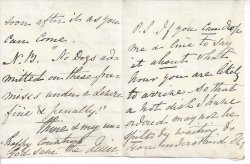 soon after it as you
can come.
N.B. "No Dogs ad-
mitted on these pre-
mises under a severe
fine & penalty."
There's my un-
happy
God save the Queen.
P.S. If you
me a line to say
at about what
hour you are likely
to arrive. So that
a hot dish I have
ordered may not be
spoiled by waiting. Do